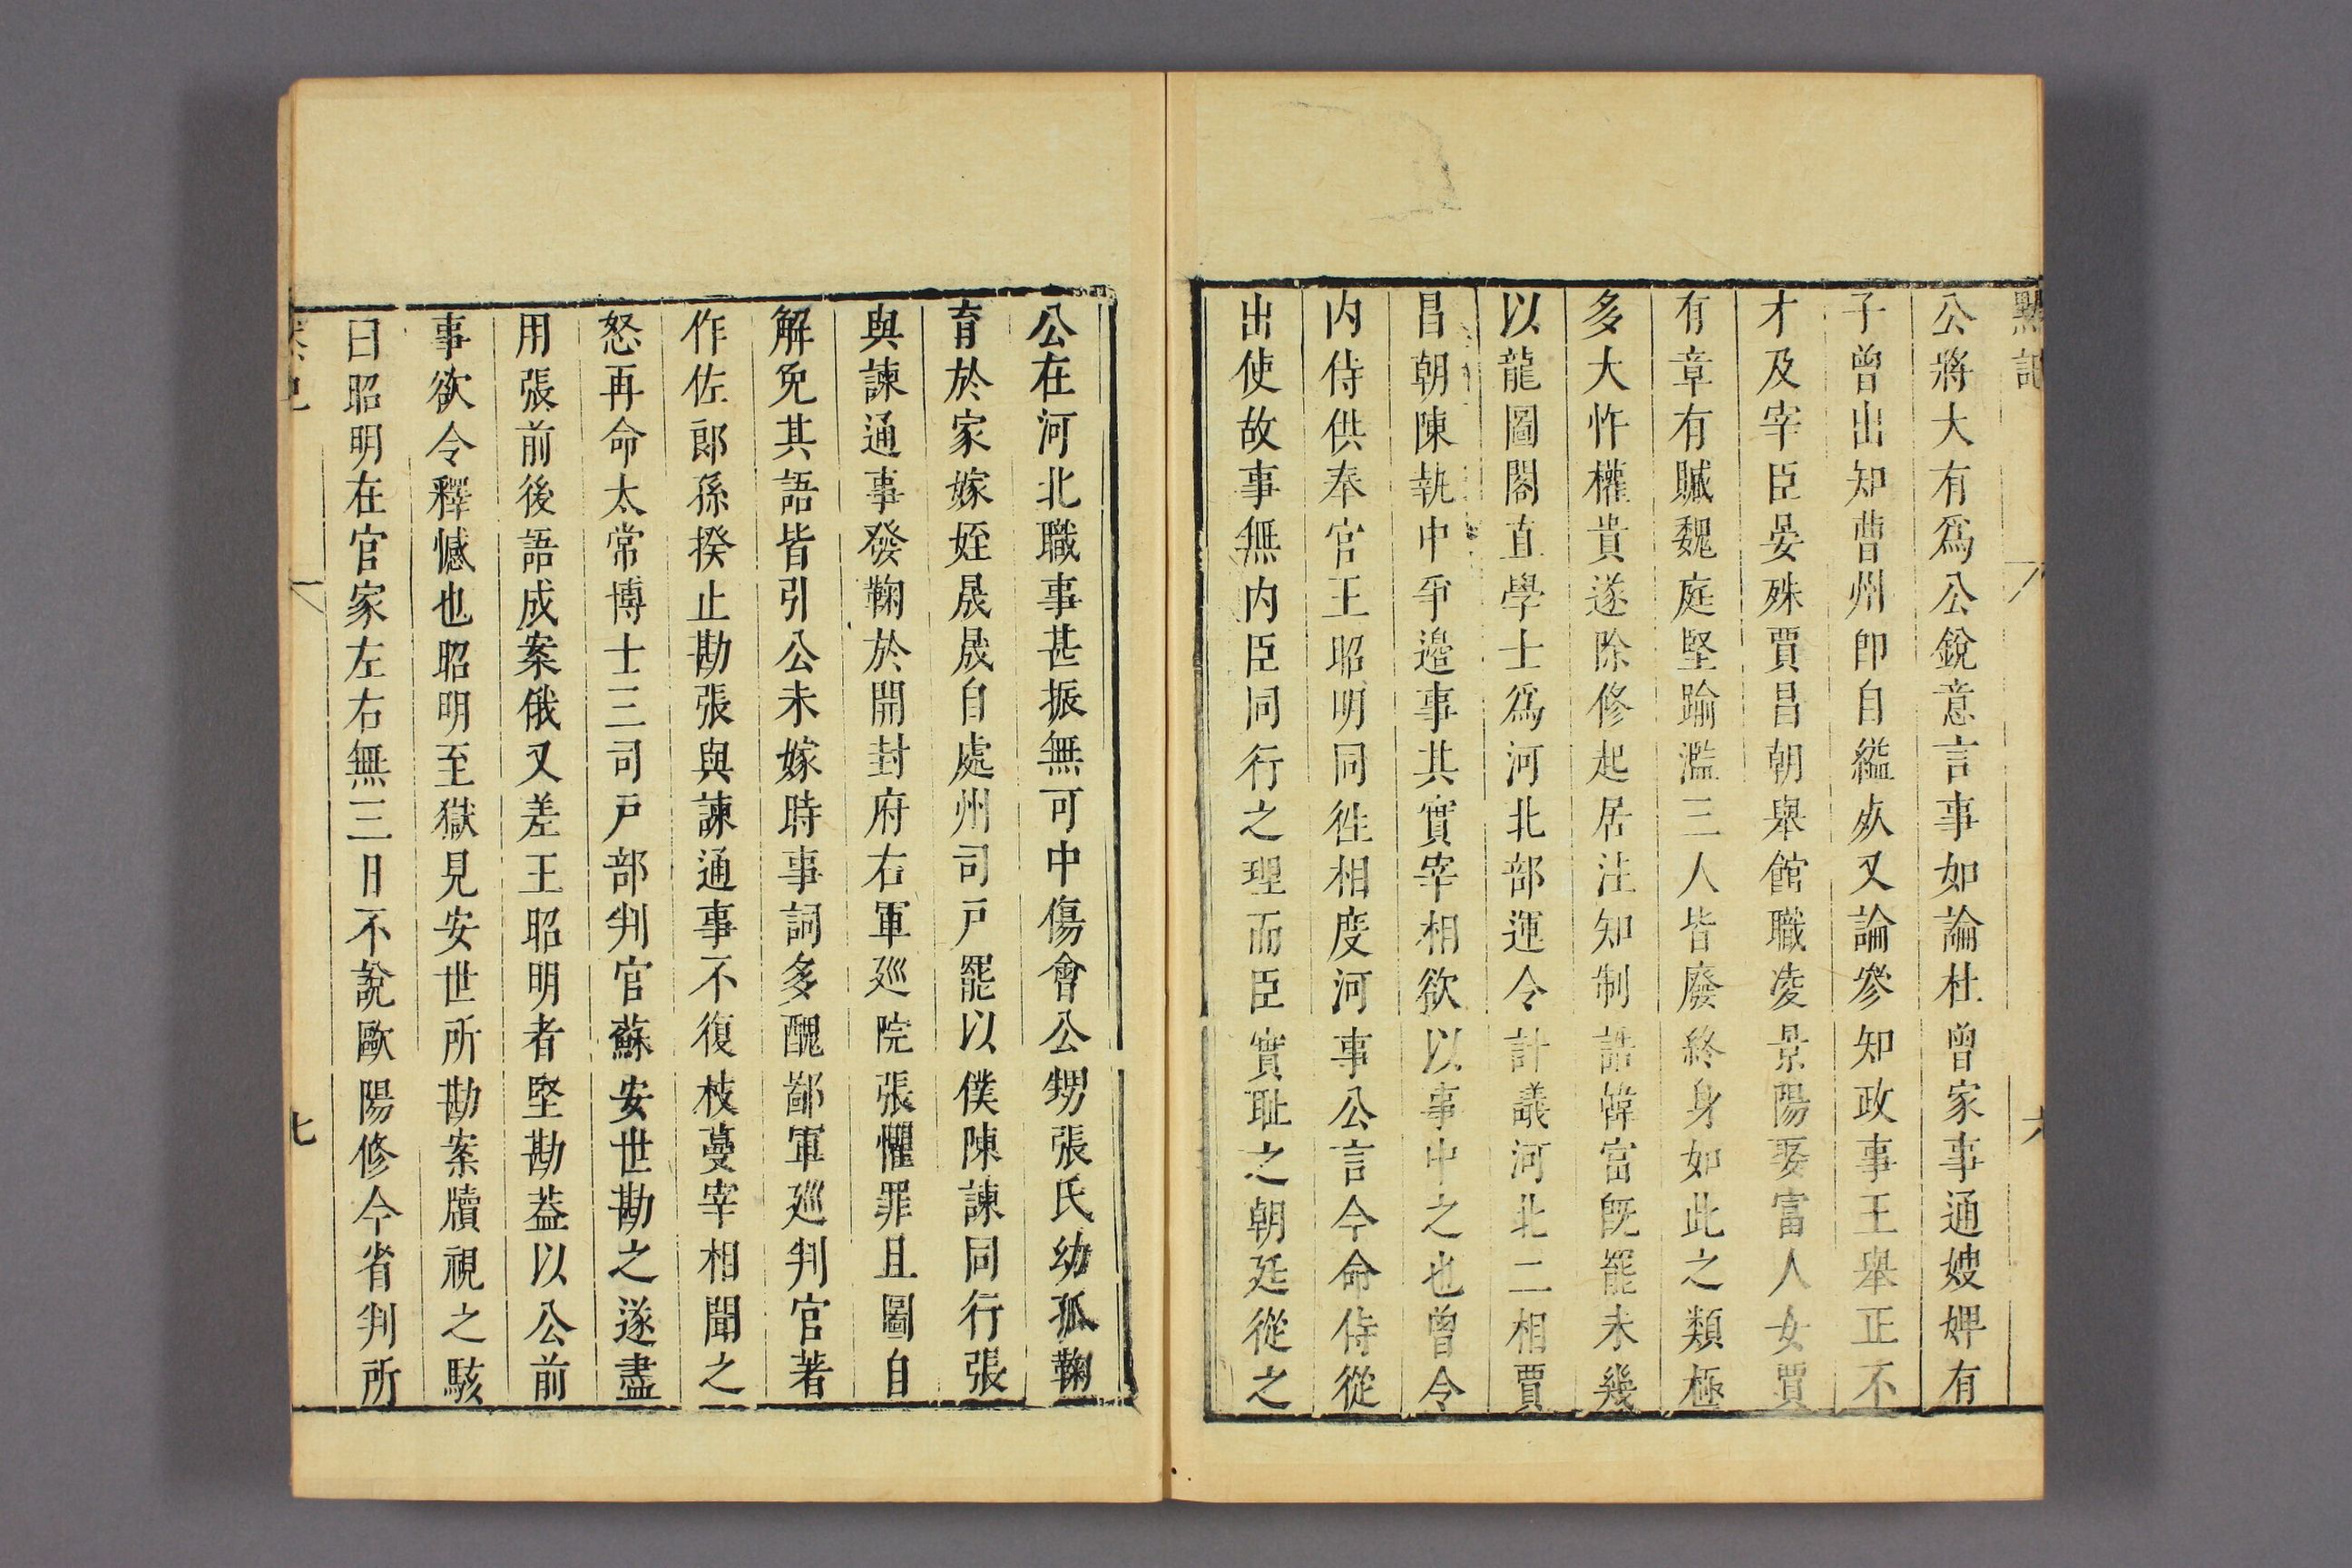 默記
六
公將大有爲公銳意言事如論杜曾家事通嫂婢有
子曾出知曹州即自縊死又論參知政事王舉正不
才及宰臣晏殊賈昌朝舉館職凌景陽娶富人女賈
有章有贓魏庭堅踰濫三人皆廢終身如此之類極
多大忤權貴遂除修起居注知制誥韓富既罷未幾
以龍圖閣直學士爲河北部運令計議河北二相賈
昌朝陳執中爭邉事其實宰相欲以事中之也曾令
内侍供奉官王昭明同徃相度河事公言今命侍從
出使故事無内臣同行之理而臣實耻之朝廷從之
公在河北職事甚振無可中傷會公甥張氏幼孤鞠
育於家嫁姪晟晟自處州司戸罷以僕陳諫同行張
與諫通事發鞠於開封府右軍廵院張懼罪且圖自
解免其語皆引公未嫁時事詞多醜鄙軍廵判官著
作佐郎孫揆止勘張與諫通事不復枝蔓宰相聞之
怒再命太常博士三司戸部判官蘇安世勘之遂盡
用張前後語成案俄又差王昭明者堅勘葢以公前
事欲令釋憾也昭明至獄見安世所勘案牘視之駭
曰昭明在官家左右無三日不說歐陽修今省判所
七